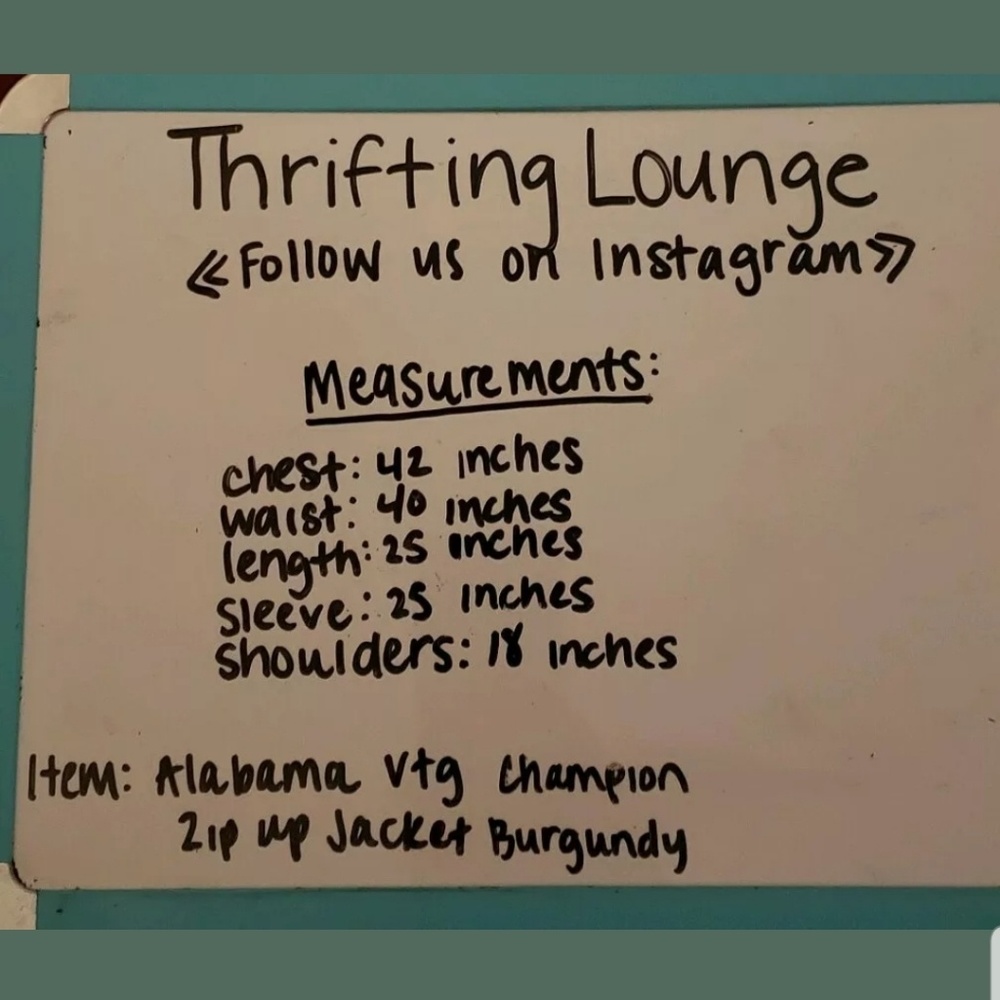 Thrifting Lounge
<<Follow us on Instagram>>
Measurements:
chest: 42 inches
waist: 40 inches
length: 25 inches
Sleeve: 25 inches
Shoulders: 18 inches
Item: Alabama Vtg Champion
Zip up Jacket Burgundy